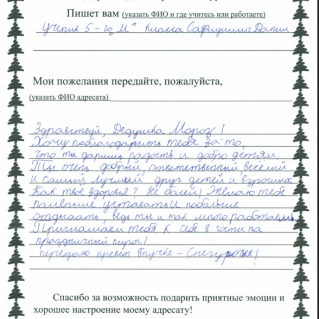 Пишет вам (указать ФИО и где учитесь или работаете)
Ученик 5-го "М" класса Сафиуллин Данил
Мои пожелания передайте, пожалуйста,
(указать ФИО адресата)
Здравствуй, Дедушка Мороз!
Хочу поблагодарить тебя за то,
что ты даришь радость и добро детям.
Ты очень добрый, ответственный, весёлый
и самый лучший друг детей и взрослых.
Как твоё здоровье? Не болей! Желаю тебе
поменьше уставать и побольше
отдыхать, ведь ты и так много работаешь.
Приглашаем тебя к себе в гости на
праздничный пирог!
Передаю привет внучке - Снегурочке!
Спасибо за возможность подарить приятные эмоции и
хорошее настроение моему адресату!